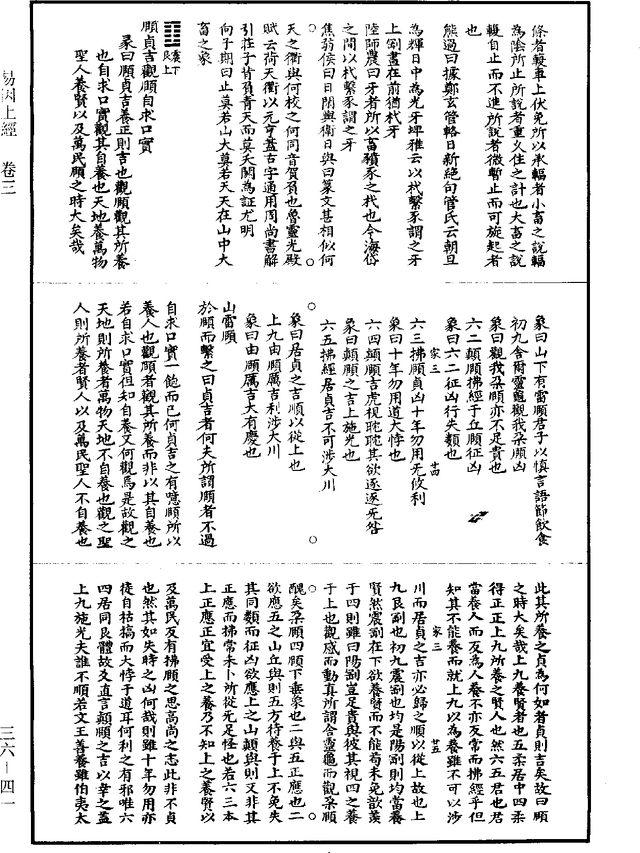 易因上經 卷三
三六—四一
條者輹車上伏兔所以承輻者小畜之說輻
為陰所止所說者重久住之計也大畜之說
輹自止而不進所說者微暫止而可旋起者
也
熊過曰據鄭玄管輅日新絕句管氏云朝旦
為輝日中為光牙埤雅云以杙繫豕謂之牙
上剛畫在前猶杙牙
陸師農曰牙者所以畜豶豕之杙也今海岱
之間以杙繫豕謂之牙
焦弱侯曰日閑輿衛日與曰篆文甚相似何
天之衢與何校之何同音賀負也魯靈光殿
賦云荷天衢以元亨蓋古字通用周尚書解
引莊子背負青天而莫夭閼為証尤明
向子期曰止莫若山大莫若天天在山中大
畜之象
䷚震下艮上
頤貞吉觀頤自求口實
彖曰頤貞吉養正則吉也觀頤觀其所養
也自求口實觀其自養也天地養萬物
聖人養賢以及萬民頤之時大矣哉
象曰山下有雷頤君子以慎言語節飲食
初九舍爾靈龜觀我朶頤凶
象曰觀我朶頤亦不足貴也
六二顛頤拂經于丘頤征凶
象曰六二征凶行失類也
家三 廿四
六三拂頤貞凶十年勿用无攸利
象曰十年勿用道大悖也
六四顛頤吉虎視眈眈其欲逐逐无咎
象曰顛頤之吉上施光也
六五拂經居貞吉不可涉大川
象曰居貞之吉順以從上也
上九由頤厲吉利涉大川
象曰由頤厲吉大有慶也
山雷頤
於頤而繫之曰貞吉者何夫所謂頤者不過
自求口實一飽而已何貞吉之有噫頤所以
養人也觀頤者觀其所養而非以其自養也
若自求口實但知自養又何觀焉是故觀之
天地則所養者萬物天地不自養也觀之聖
人則所養者賢人以及萬民聖人不自養也
此其所養之貞為何如者貞則吉矣故曰頤
之時大矣哉上九養賢者也五柔居中四柔
得正正上九所養之賢人也然六五君也君
當養人而反為人養不亦反常而拂經乎但
知其不能養而就上九以為養雖不可以涉
家三 廿五
川而居貞之吉亦必歸之順以從上故也上
九艮剛也初九震剛也均是陽剛則均當養
賢然震剛在下欲養賢而不能苟未免歆羨
于四則雖曰陽剛豈足貴與彼其視四之養
于上也觀感而動真所謂舍靈龜而觀朶頤
醜矣朶頤四頤下垂象也二與五正應也二
欲應五之山丘與則五方待養于上不免失
其同類而征凶欲應上之山顛與則又非其
正應而拂常未卜所從无足怪也若六三本
上正應正宜受上之養乃不知上之養賢以
及萬民友有拂頤之思高尚之志此非不貞
也然其如失時之凶何哉則雖十年勿用亦
徒自枯槁而大悖于道耳何利之有邪唯六
四居同艮體故爻直言顛頤之吉以幸之蓋
上九施光夫誰不順若文王善養雖伯夷太